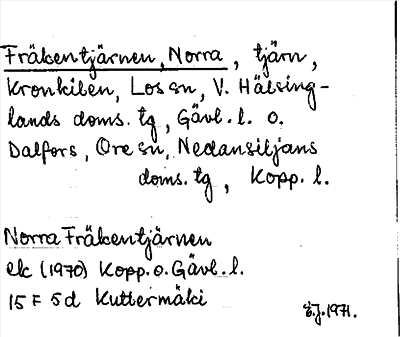 Fräkentjärnen, Norra, tjärn,
Kronkilen, Los sn, V. Hälsing-
lands doms. tg, Gävl. l. o.
Dalfors, Ore sn, Nedansiljans
doms. tg, Kopp. l.
Norra Fräkentjärnen
ek (1970) Kopp. o. Gävl. l.
15 F 5d Kuttermäki
E.J. 1971.